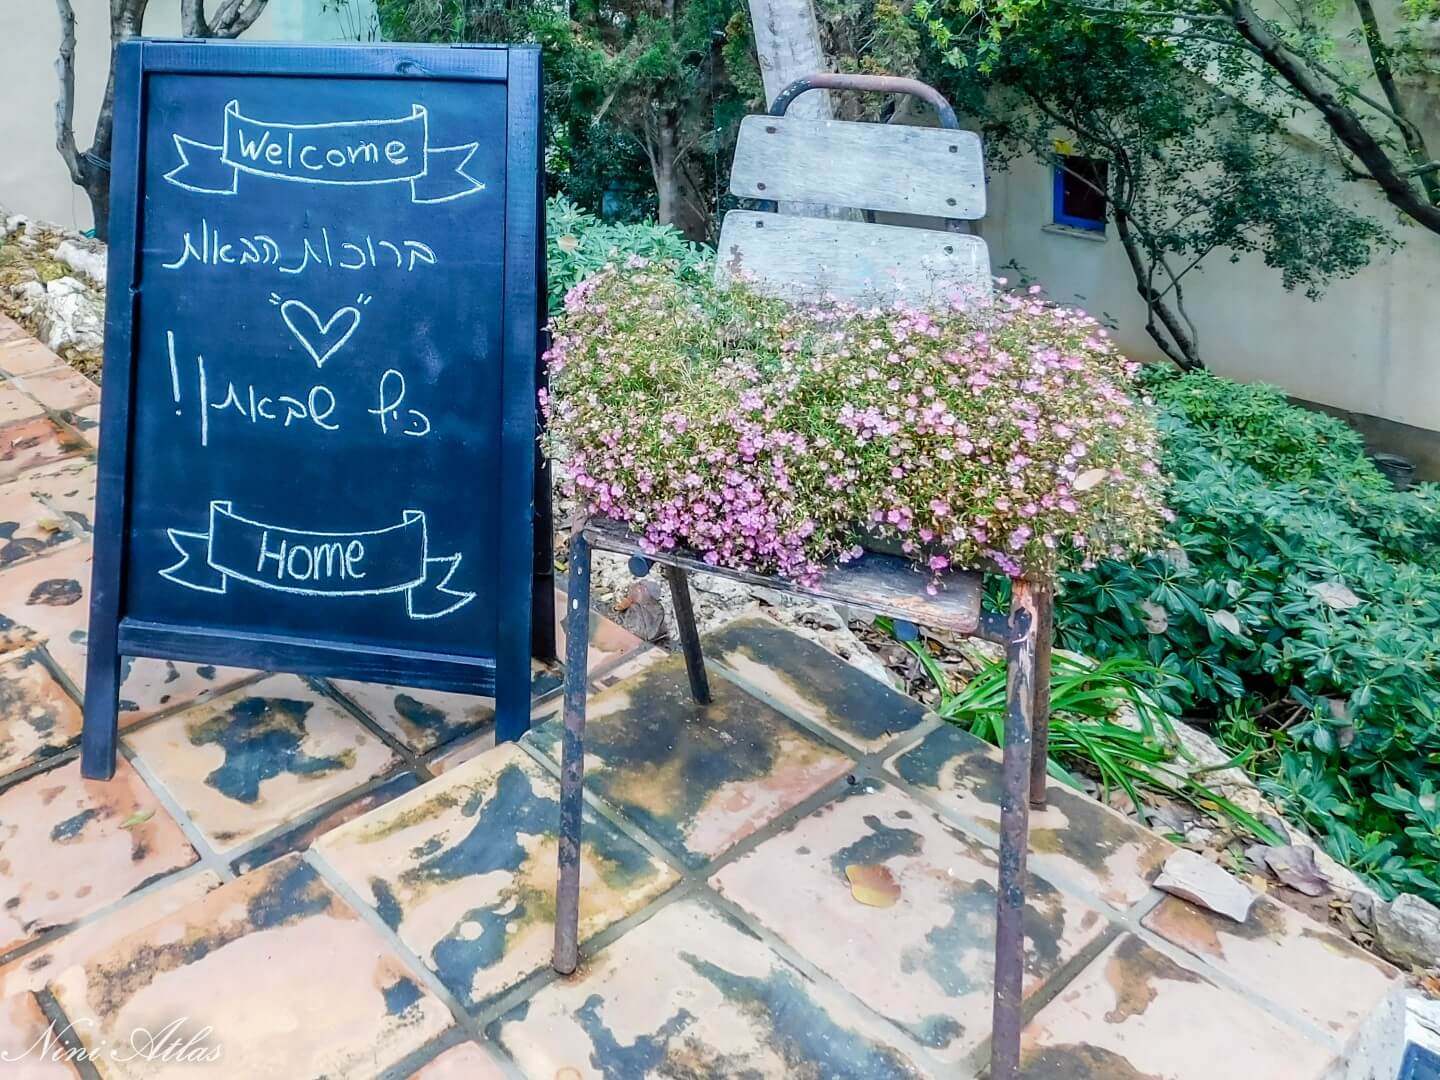 Welcome
ברוכות הבאות
כיף שבאתן!
Home
Nini Atlas